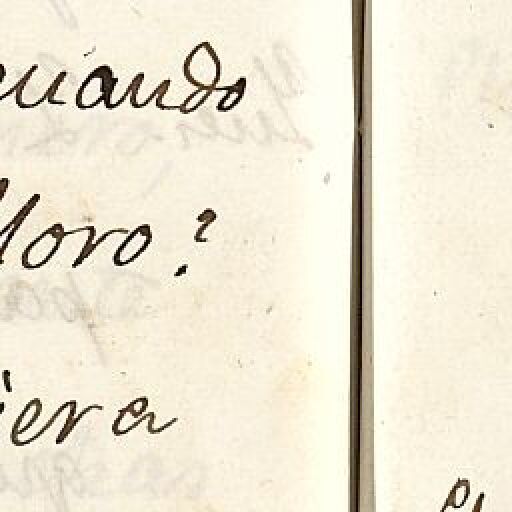 cuando
lloro?
iera